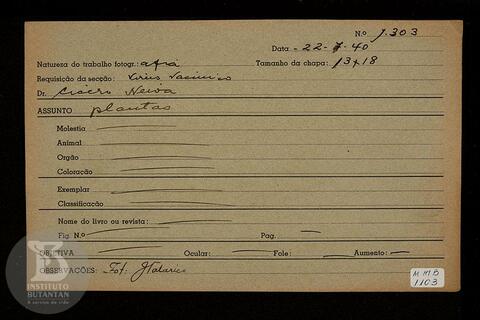 N.o 1.303
Data - 22-7-40
Natureza do trabalho fotogr.:
Tamanho da chapa: 13x18
Requisição da secção: Virus
Dr. Cicero Neiva
ASSUNTO plantas
Molestia
Animal
Orgão
Coloração
Exemplar
Classificação
Nome do livro ou revista:
Fig. N.o Pag.
OBJETIVA Ocular: Fole: Aumento:
OBSERVAÇÕES: Fot.
M IIB
1103
INSTITUTO
BUTANTAN
A serviço da vida